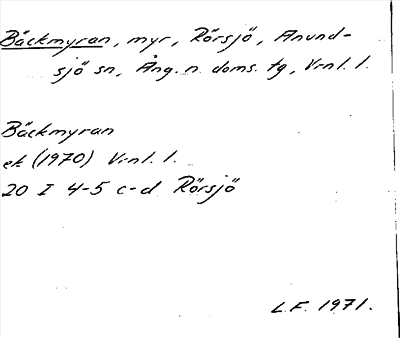 Bäckmyran, myr, Rörsjö, Anund-
sjö sn, Ång. n. doms. tg, Vrnl. l.
Bäckmyran
ek (1970) Vrnl. l.
20 I 4-5 c-d Rörsjö
L.F. 1971.